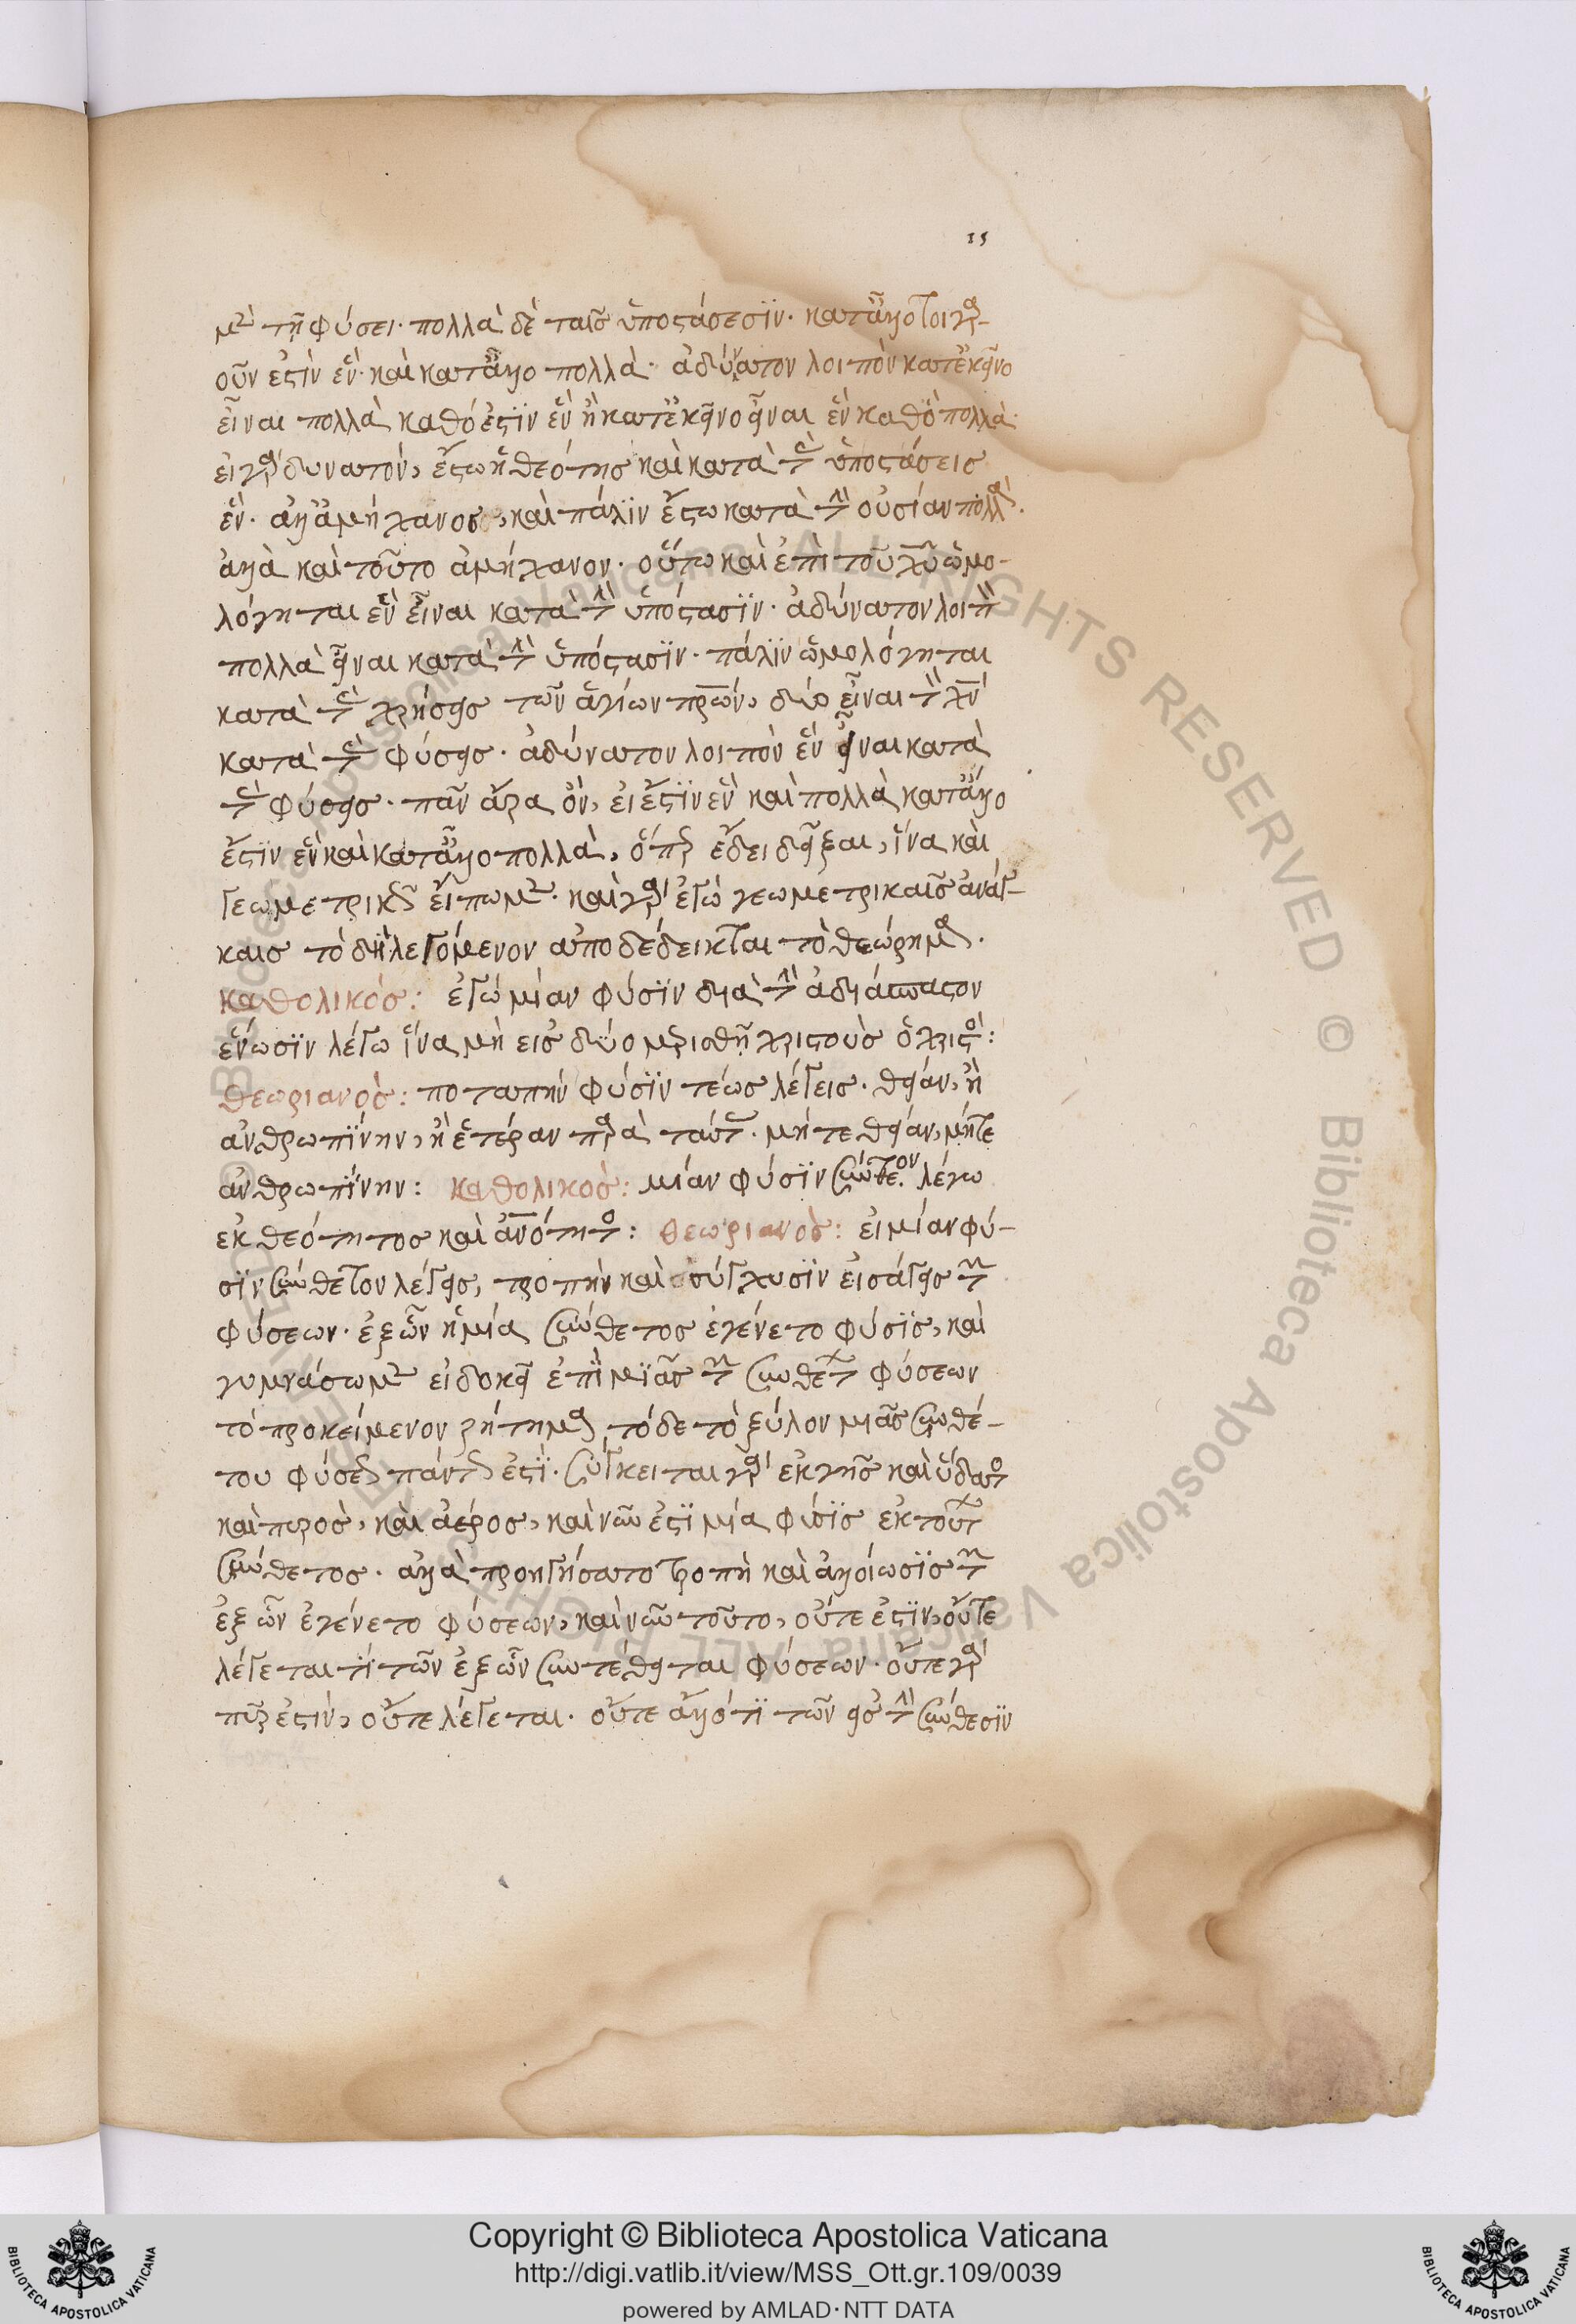 15
μὲν τῇ φύσει· πολλὰ δὲ ταῖς ὑποστάσεσϊν· κατ' ἄλλο τοιγαρ-
οῦν ἐστὶν ἕν· καὶ κατ' ἄλλο πολλά· ἀδύνατον λοιπὸν κατ' ἐκεῖνο
εἶναι πολλὰ καθό ἐστϊν ἓν ἢ κατ' ἐκεῖνο εἶναι ἓν καθὸ πολλά·
εἰ γὰρ δυνατόν, ἔστω ἡ θεότης καὶ κατὰ τὰς ὑποστάσεις
ἕν· ἀλλ' ἀμήχανος, καὶ πάλϊν ἔστω κατὰ τὴν οὐσίαν πολλά·
ἀλλὰ καὶ τοῦτο ἀμήχανον· οὕτω καὶ ἐπὶ τοῦ χυ ὡμο-
λόγηται ἓν εἶναι κατὰ τὴν ὑπόστασϊν· ἀδύνατον λοιπὸν
πολλὰ εἶναι κατὰ τὴν ὑπόστασϊν· πάλϊν ὡμολόγηται
κατὰ τὰς χρήσεις τῶν ἁγίων πρων, δύο εἶναι τὸν χν
κατὰ τὰς φύσεις· ἀδύνατον λοιπὸν ἓν εἶναι κατὰ
τὰς φύσεις· πᾶν ἄρα ὄν, εἰ ἔστϊν ἓν καὶ πολλὰ κατ' ἄλλο
ἔστϊν ἓν καὶ κατ' ἄλλο πολλά, ὅπερ ἔδει δεῖξαι, ἵνα καὶ
γεωμετρικῶς εἴπωμεν· καὶ γὰρ ἐγὼ γεωμετρικαῖς ἀνάγ-
καις τὸ δὴ λεγόμενον ἀποδέδεικται τὸ θεώρημα·
καθολικός: ἐγώ μίαν φύσϊν διὰ τὴν ἀδιάσπαστον
ἕνωσϊν λέγω ἵνα μὴ εἰς δύο μερισθῇ χριστοὺς ὁ χριστός:
θεωριανὸς: ποταπὴν φύσϊν τέως λέγεις· θείαν, ἢ
ἀνθρωπΐνην, ἢ ἑτέραν παρὰ ταύτας· μήτε θείαν, μήτε
ἀνθρωπΐνην: καθολικὸς: μίαν φύσϊν σύνθετον λέγω
ἐκ θεότητος καὶ ἀνότητος: θεωριανὸς: εἰ μίαν φύ-
σϊν σύνθετον λέγεις, τροπὴν καὶ σύγχυσϊν εἰσάγεις τῶν
φύσεων· ἐξ ὧν ἡ μία σύνθετος ἐγένετο φύσϊς, καὶ
γυμνάσωμεν εἰ δοκεῖ ἐπὶ μϊᾶς τῶν συνθέτων φύσεων
τὸ προκείμενον ζήτημα, τόδε τὸ ξύλον μιᾶς συνθέ-
του φύσεως πάντως ἐστΐ· σύγκειται γὰρ ἐκ γῆς καὶ ὕδατος
καὶ πυρὸς, καὶ ἀέρος, καὶ νῦν ἐστϊ μία φύσϊς ἐκ τούτων
σύνθετος· ἀλλὰ προηγήσατο τροπὴ καὶ ἀλλοίωσϊς τῶν
ἐξ ὧν ἐγένετο φύσεων, καὶ νῦν τοῦτο, οὔτε ἐστϊν, οὔτε
λέγεταί τι τῶν ἐξ ὧν συντέθειται φύσεων· οὔτε γὰρ
πῦρ ἐστιν, οὔτε λέγεται· οὔτε ἄλλό τϊ τῶν εἰς τὴν σύνθεσϊν
Copyright © Biblioteca Apostolica Vaticana
http://digi.vatlib.it/view/MSS_Ott.gr.109/0039
powered by AMLAD·NTT DATA